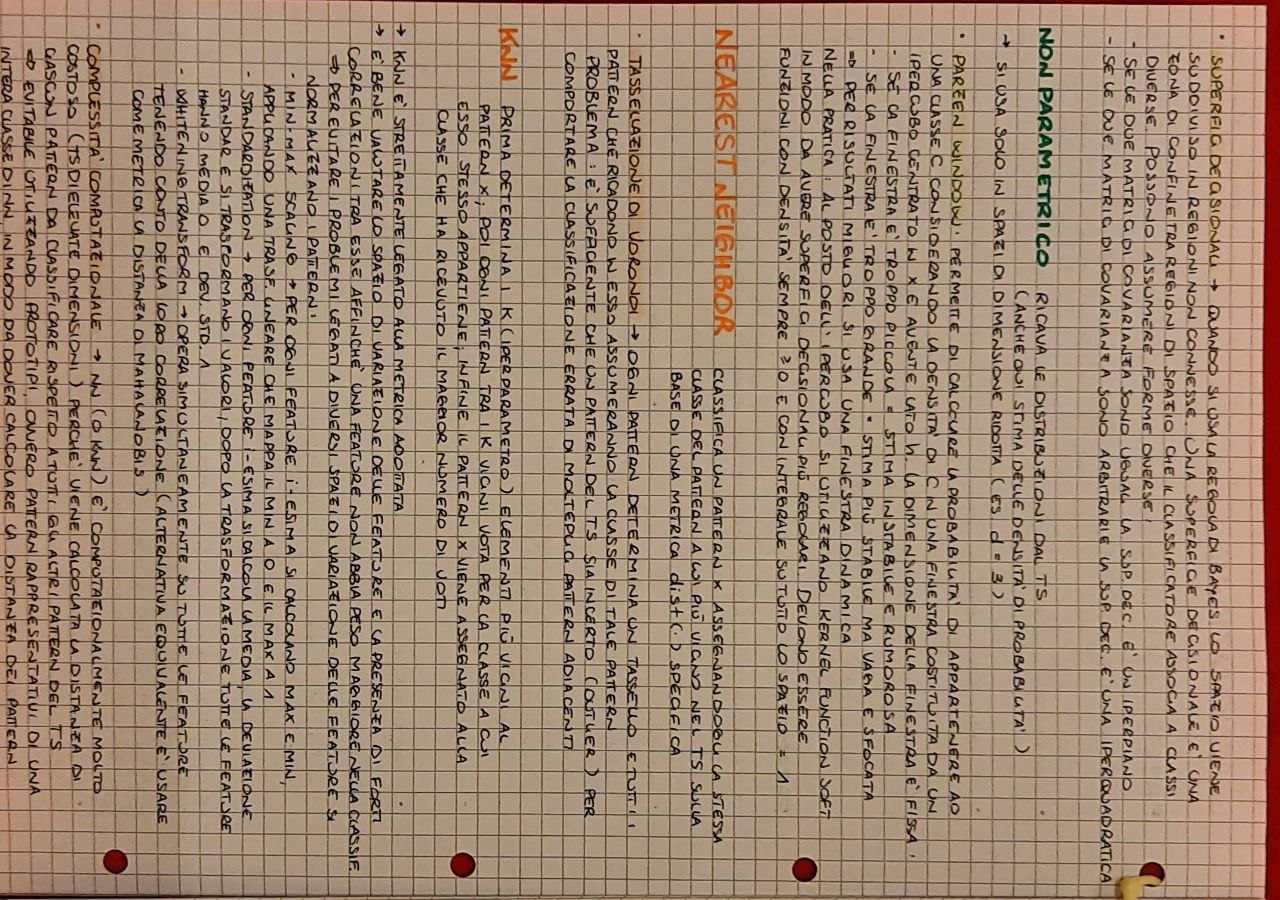 • SUPERFICI DECISIONALI → QUANDO SI USA LA REGOLA DI BAYES LO SPAZIO VIENE
SUDDIVISO IN REGIONI NON CONNESSE. UNA SUPERFICIE DECISIONALE E' UNA
ZONA DI CONFINE TRA REGIONI DI SPAZIO CHE IL CLASSIFICATORE ASSOCIA A CLASSI
DIVERSE. POSSONO ASSUMERE FORME DIVERSE:
- SE LE DUE MATRICI DI COVARIANZA SONO UGUALI LA SUP. DEC. E' UN IPERPIANO
- SE LE DUE MATRICI DI COVARIANZA SONO ARBITRARIE LA SUP. DEC. E' UNA IPERQUADRATICA
NON PARAMETRICO RICAVA LE DISTRIBUZIONI DAL TS
(ANCHE QUI STIMA DELLE DENSITA' DI PROBABILITA')
→ SI USA SOLO IN SPAZI DI DIMENSIONE RIDOTTA (ES. d = 3)
• PARZEN WINDOW: PERMETTE DI CALCOLARE LA PROBABILITA' DI APPARTENERE AD
UNA CLASSE C CONSIDERANDO LA DENSITA' DI C IN UNA FINESTRA COSTITUITA DA UN
IPERCUBO CENTRATO IN X E AVENTE LATO h. LA DIMENSIONE DELLA FINESTRA E' FISSA:
- SE LA FINESTRA E' TROPPO PICCOLA = STIMA INSTABILE E RUMOROSA
- SE LA FINESTRA E' TROPPO GRANDE = STIMA PIÙ STABILE MA VAGA E SFOCATA
⇒ PER RISULTATI MIGLIORI SI USA UNA FINESTRA DINAMICA
NELLA PRATICA: AL POSTO DELL'IPERCUBO SI UTILIZZANO KERNEL FUNCTION SOFT
IN MODO DA AVERE SUPERFICI DECISIONALI PIÙ REGOLARI. DEVONO ESSERE
FUNZIONI CON DENSITA' SEMPRE ≥0 E CON INTEGRALE SU TUTTO LO SPAZIO = 1
NEAREST NEIGHBOR CLASSIFICA UN PATTERN X ASSEGNANDOGLI LA STESSA
CLASSE DEL PATTERN A LUI PIÙ VICINO NEL TS SULLA
BASE DI UNA METRICA dist(·) SPECIFICA
• TASSELLAZIONE DI VORONOI → OGNI PATTERN DETERMINA UN TASSELLO E TUTTI I
PATTERN CHE RICADONO IN ESSO ASSUMERANNO LA CLASSE DI TALE PATTERN
PROBLEMA: E' SUFFICIENTE CHE UN PATTERN DEL TS SIA INCERTO (OUTLIER) PER
COMPORTARE LA CLASSIFICAZIONE ERRATA DI MOLTEPLICI PATTERN ADIACENTI
KNN PRIMA DETERMINA I K (IPERPARAMETRO) ELEMENTI PIÙ VICINI AL
PATTERN X; POI OGNI PATTERN TRA I K VICINI VOTA PER LA CLASSE A CUI
ESSO STESSO APPARTIENE; INFINE IL PATTERN X VIENE ASSEGNATO ALLA
CLASSE CHE HA RICEVUTO IL MAGGIOR NUMERO DI VOTI
→ KNN E' STRETTAMENTE LEGATO ALLA METRICA ADOTTATA
→ E' BENE VALUTARE LO SPAZIO DI VARIAZIONE DELLE FEATURE E LA PRESENZA DI FORTI
CORRELAZIONI TRA ESSE AFFINCHÈ UNA FEATURE NON ABBIA PESO MAGGIORE NELLA CLASSIF.
⇒ PER EVITARE I PROBLEMI LEGATI A DIVERSI SPAZI DI VARIAZIONE DELLE FEATURE SI
NORMALIZZANO I PATTERN:
- MIN-MAX SCALING → PER OGNI FEATURE i-ESIMA SI CALCOLANO MAX E MIN,
APPLICANDO UNA TRASF. LINEARE CHE MAPPA IL MIN A 0 E IL MAX A 1
- STANDARDIZATION → PER OGNI FEATURE i-ESIMA SI CALCOLA LA MEDIA, LA DEVIAZIONE
STANDAR E SI TRASFORMANO I VALORI, DOPO LA TRASFORMAZIONE TUTTE LE FEATURE
HANNO MEDIA 0 E DEV. STD. 1
- WHITENING TRANSFORM → OPERA SIMULTANEAMENTE SU TUTTE LE FEATURE
TENENDO CONTO DELLA LORO CORRELAZIONE (ALTERNATIVA EQUIVALENTE E' USARE
COME METRICA LA DISTANZA DI MAHALANOBIS)
• COMPLESSITA' COMPUTAZIONALE → NN (O KNN) E' COMPUTAZIONALMENTE MOLTO
COSTOSO (TS DI ELEVATE DIMENSIONI) PERCHE' VIENE CALCOLATA LA DISTANZA DI
CIASCUN PATTERN DA CLASSIFICARE RISPETTO A TUTTI GLI ALTRI PATTERN DEL TS
⇒ EVITABILE UTILIZZANDO PROTOTIPI, OVVERO PATTERN RAPPRESENTATIVI DI UNA
INTERA CLASSE DI NN, IN MODO DA DOVER CALCOLARE LA DISTANZA DEI PATTERN